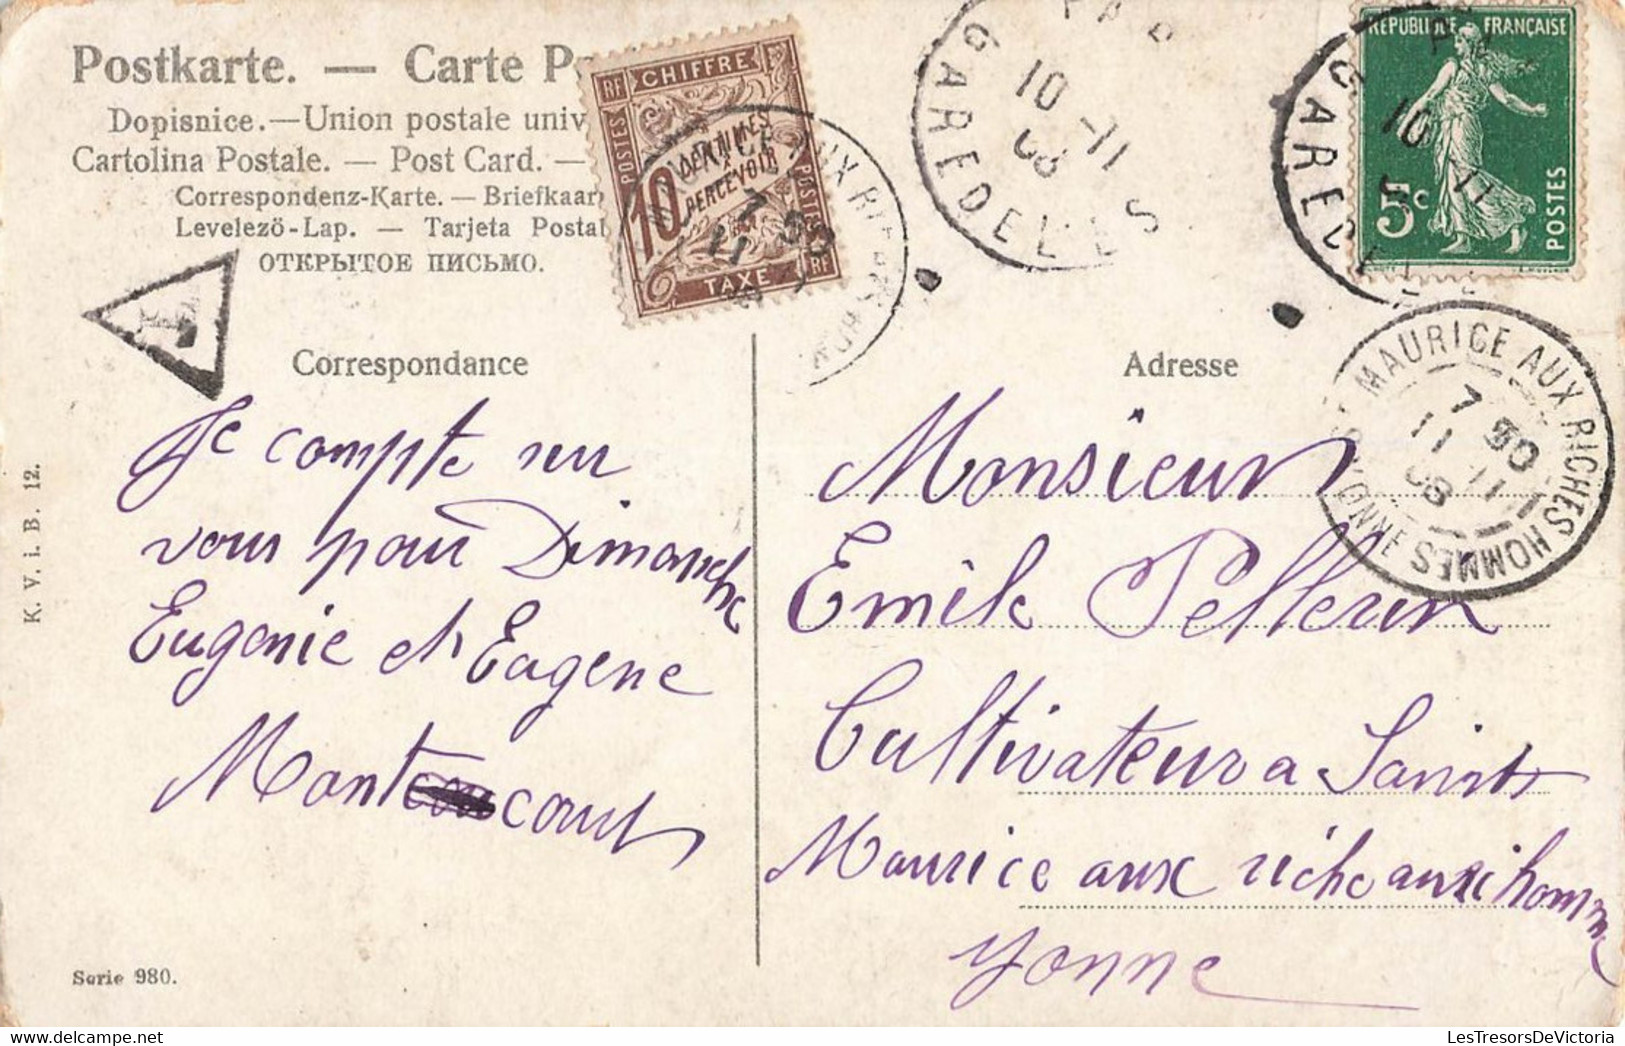 Postkarte. — Carte P
Dopisnice.—Union postale univ
Cartolina Postale. — Post Card. —
Correspondenz-Karte. — Briefkaar
Levelezö-Lap. — Tarjeta Postal
ОТКРЫТОЕ ПИСЬМО.
RF CHIFFRE
POSTES
10 CENTIMES
A
PERCEVOIR
POSTES
TAXE RF
GARE DE L'EST
10 -11
08
RÉPUBLIQUE FRANÇAISE
5c
POSTES
GARE DE L'EST
10 11
ST MAURICE AUX RICHES HOMMES
YONNE
7 30
11 -11
08
T
Correspondance
Je compte sur
vous pour Dimanche
Eugenie et Eugene
Montcourt
Adresse
Monsieur
Emile Pellerin
Cultivateur a Saint
Maurice aux riche aux homme
Yonne
K. V. i. B. 12.
Serie 980.
LesTresorsDeVictoria.com